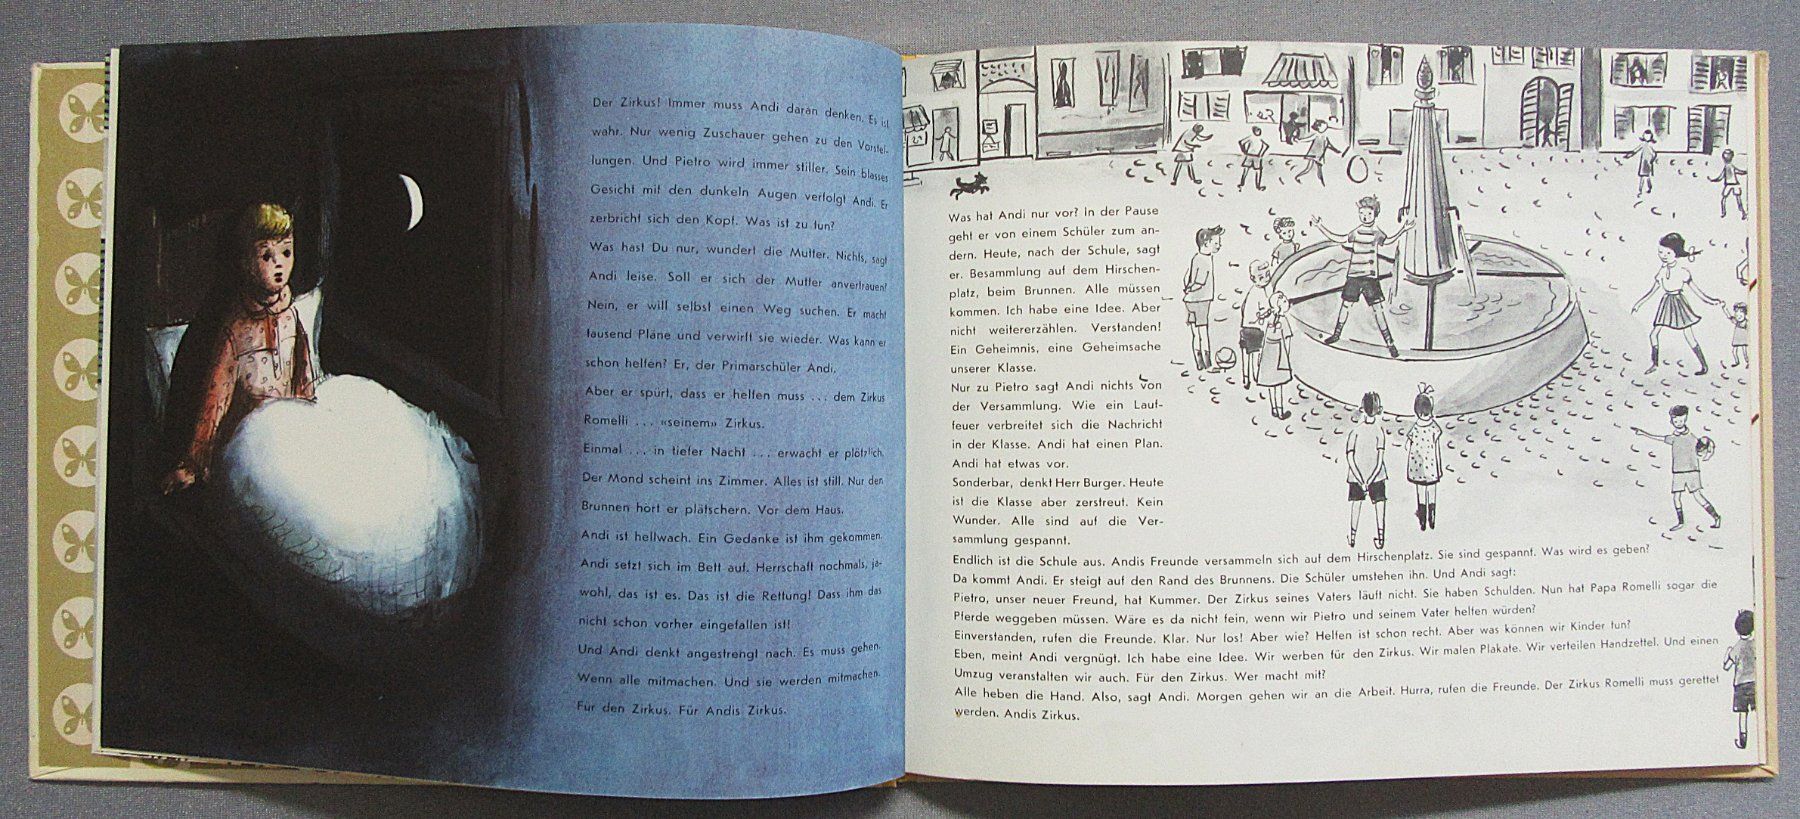 Der Zirkus! Immer muss Andi daran denken. Es ist
wahr. Nur wenig Zuschauer gehen zu den Vorstel-
lungen. Und Pietro wird immer stiller. Sein blasses
Gesicht mit den dunkeln Augen verfolgt Andi. Er
zerbricht sich den Kopf. Was ist zu tun?
Was hast Du nur, wundert die Mutter. Nichts, sagt
Andi leise. Soll er sich der Mutter anvertrauen?
Nein, er will selbst einen Weg suchen. Er macht
tausend Pläne und verwirft sie wieder. Was kann er
schon helfen? Er, der Primarschüler Andi.
Aber er spürt, dass er helfen muss . . . dem Zirkus
Romelli . . . «seinem» Zirkus.
Einmal . . . in tiefer Nacht . . . erwacht er plötzlich.
Der Mond scheint ins Zimmer. Alles ist still. Nur den
Brunnen hört er plätschern. Vor dem Haus.
Andi ist hellwach. Ein Gedanke ist ihm gekommen.
Andi setzt sich im Bett auf. Herrschaft nochmals, ja-
wohl, das ist es. Das ist die Rettung! Dass ihm das
nicht schon vorher eingefallen ist!
Und Andi denkt angestrengt nach. Es muss gehen.
Wenn alle mitmachen. Und sie werden mitmachen.
Für den Zirkus. Für Andis Zirkus.
Was hat Andi nur vor? In der Pause
geht er von einem Schüler zum an-
dern. Heute, nach der Schule, sagt
er. Besammlung auf dem Hirschen-
platz, beim Brunnen. Alle müssen
kommen. Ich habe eine Idee. Aber
nicht weitererzählen. Verstanden!
Ein Geheimnis, eine Geheimsache
unserer Klasse.
Nur zu Pietro sagt Andi nichts von
der Versammlung. Wie ein Lauf-
feuer verbreitet sich die Nachricht
in der Klasse. Andi hat einen Plan.
Andi hat etwas vor.
Sonderbar, denkt Herr Burger. Heute
ist die Klasse aber zerstreut. Kein
Wunder. Alle sind auf die Ver-
sammlung gespannt.
Endlich ist die Schule aus. Andis Freunde versammeln sich auf dem Hirschenplatz. Sie sind gespannt. Was wird es geben?
Da kommt Andi. Er steigt auf den Rand des Brunnens. Die Schüler umstehen ihn. Und Andi sagt:
Pietro, unser neuer Freund, hat Kummer. Der Zirkus seines Vaters läuft nicht. Sie haben Schulden. Nun hat Papa Romelli sogar die
Pferde weggeben müssen. Wäre es da nicht fein, wenn wir Pietro und seinem Vater helfen würden?
Einverstanden, rufen die Freunde. Klar. Nur los! Aber wie? Helfen ist schon recht. Aber was können wir Kinder tun?
Eben, meint Andi vergnügt. Ich habe eine Idee. Wir werben für den Zirkus. Wir malen Plakate. Wir verteilen Handzettel. Und einen
Umzug veranstalten wir auch. Für den Zirkus. Wer macht mit?
Alle heben die Hand. Also, sagt Andi. Morgen gehen wir an die Arbeit. Hurra, rufen die Freunde. Der Zirkus Romelli muss gerettet
werden. Andis Zirkus.